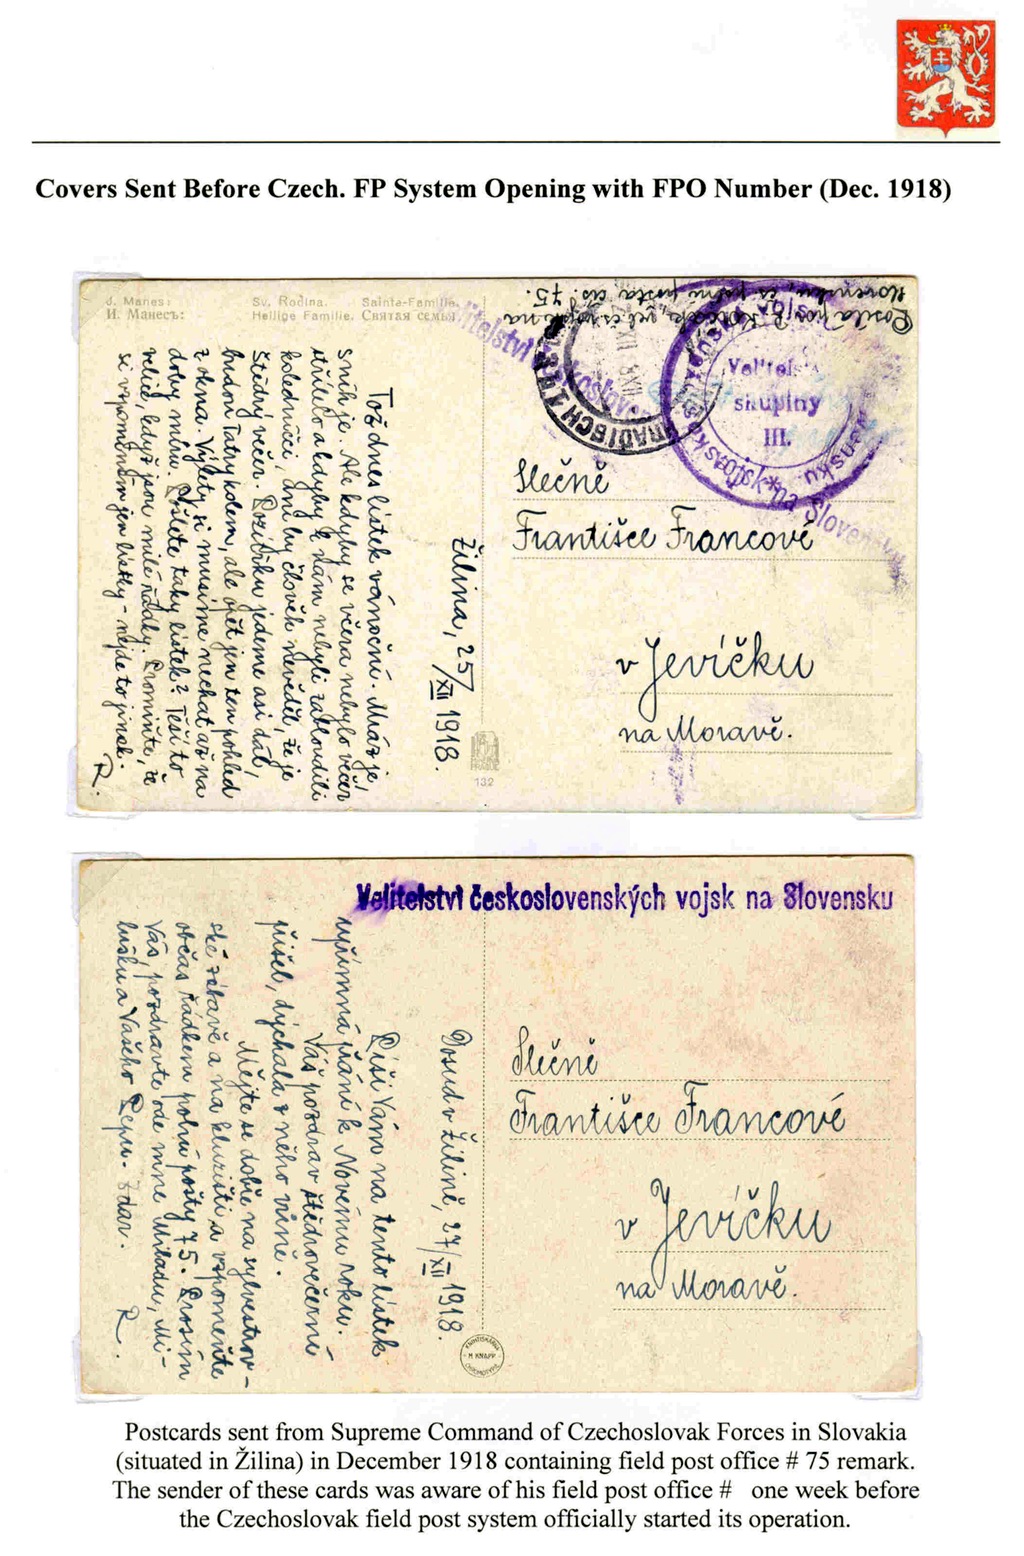 Covers Sent Before Czech. FP System Opening with FPO Number (Dec. 1918)
J. Manes: Sv. Rodina. Sainte-Famille.
И. Манесъ: Heilige Familie. Святая семья.
Žilina, 25/XII 1918.
Tož dnes lístek vánoční. Mráz je,
sníh je. Ale kdyby se včera nebylo večer
střílelo a kdyby k nám nebyli zabloudili
koledníci, ani by člověk nevěděl, že je
štědrý večer. Pozítřku jedeme asi dál,
budou Tatry kolem, ale opět jen ten pohled
z okna. Výlety si musíme nechat až na
doby míru. Pošlete taky lístek? Těší to
velice, když jsou milé řádky. Promiňte, že
si vzpomenu jen lístky - nejde to jinak.
R.
Velitelství
skupiny
III.
HRADISCH
Slečně
Františce Francové
v Jevíčku
na Moravě.
132
Velitelství československých vojsk na Slovensku
Posud v Žilině, 27/XII 1918.
Píši Vám na tento lístek
upřímná přání k Novému roku.
Váš pozdrav štědrovečerní
přišel, dýchala z něho vůně.
Mějte se dobře na sylvestrov-
ské zábavě a na kluzišti a vzpomeňte
občas řádkem polní pošty 75. Prosím
Vás, pozdravte ode mne Miladu, Mi-
lušku a Vašeho Pepu. Zdar.
R.
Slečně
Františce Francové
v Jevíčku
na Moravě.
M KNAPP
Postcards sent from Supreme Command of Czechoslovak Forces in Slovakia
(situated in Žilina) in December 1918 containing field post office # 75 remark.
The sender of these cards was aware of his field post office # one week before
the Czechoslovak field post system officially started its operation.